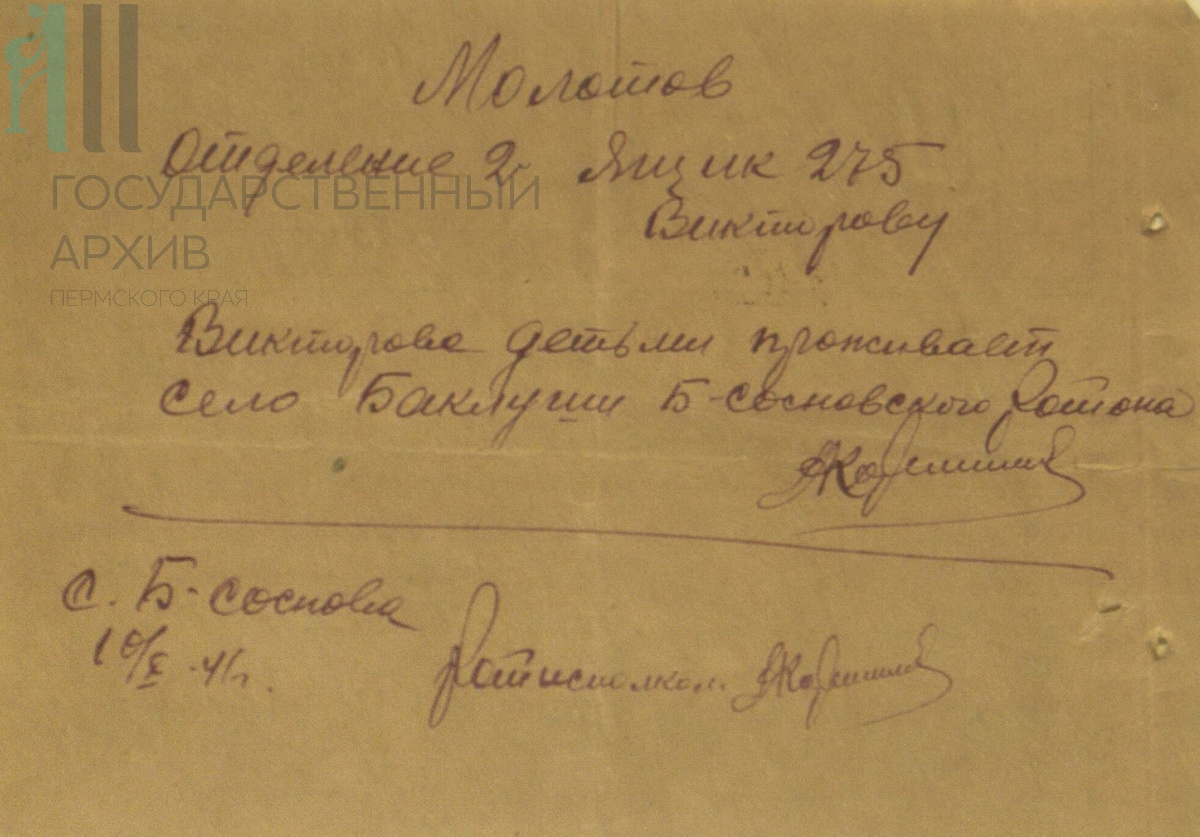 Молотов
Отделение 2. Ящик 275
ГОСУДАРСТВЕННЫЙ
Викторову
АРХИВ
ПЕРМСКОГО КРАЯ
Викторова детьми проживает
село Баклуши Б-сосновского района
с. Б-соснова
10/X-41г.